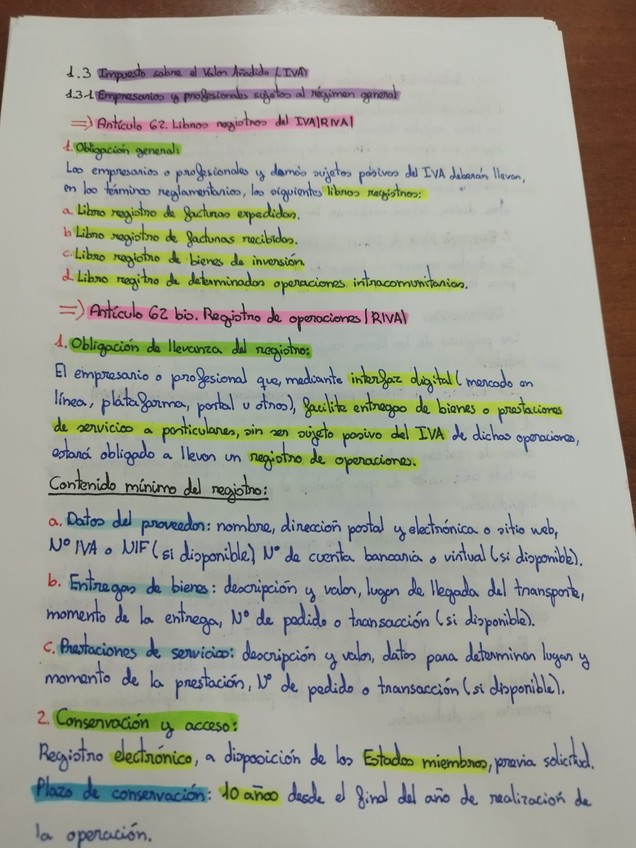 1.3 Impuesto sobre el Valor Añadido (IVA)
1.3.1 Empresarios y profesionales sujetos al régimen general
=> Artículo 62. Libros registros del IVA|RIVA|
1. Obligación general:
Los empresarios o profesionales y demás sujetos pasivos del IVA deberán llevar,
en los término reglamentarios, los siguientes libros registros:
a. Libro registro de facturas expedidas.
b Libro registro de facturas recibidas.
c. Libro registro de bienes de inversión.
d. Libro regitro de determinadas operaciones intracomunitarias.
=> Artículo 62 bis. Registro de operaciones |RIVA|
1. Obligación de llevanza del registro:
El empresario o profesional que, mediante interfaz digital (mercado en
línea, plataforma, portal u otros), facilite entregas de bienes o prestaciones
de servicios a particulares, sin ser sujeto pasivo del IVA de dichas operaciones,
estará obligado a llevar un registro de operaciones.
Contenido mínimo del registro:
a. Datos del proveedor: nombre, dirección postal y electrónica o sitio web,
Nº IVA o NIF (si disponible) Nº de cuenta bancaria o virtual (si disponible).
b. Entregas de bienes: descripción y valor, lugar de llegada del transporte,
momento de la entrega, Nº de pedido o transacción (si disponible).
c. Prestaciones de servicios: descripción y valor, datos para determinar lugar y
momento de la prestación, Nº de pedido o transacción (si disponible).
2. Conservación y acceso:
Registro electrónico, a disposición de los Estados miembros, previa solicitud.
Plazo de conservación: 10 años desde el final del año de realización de
la operación.